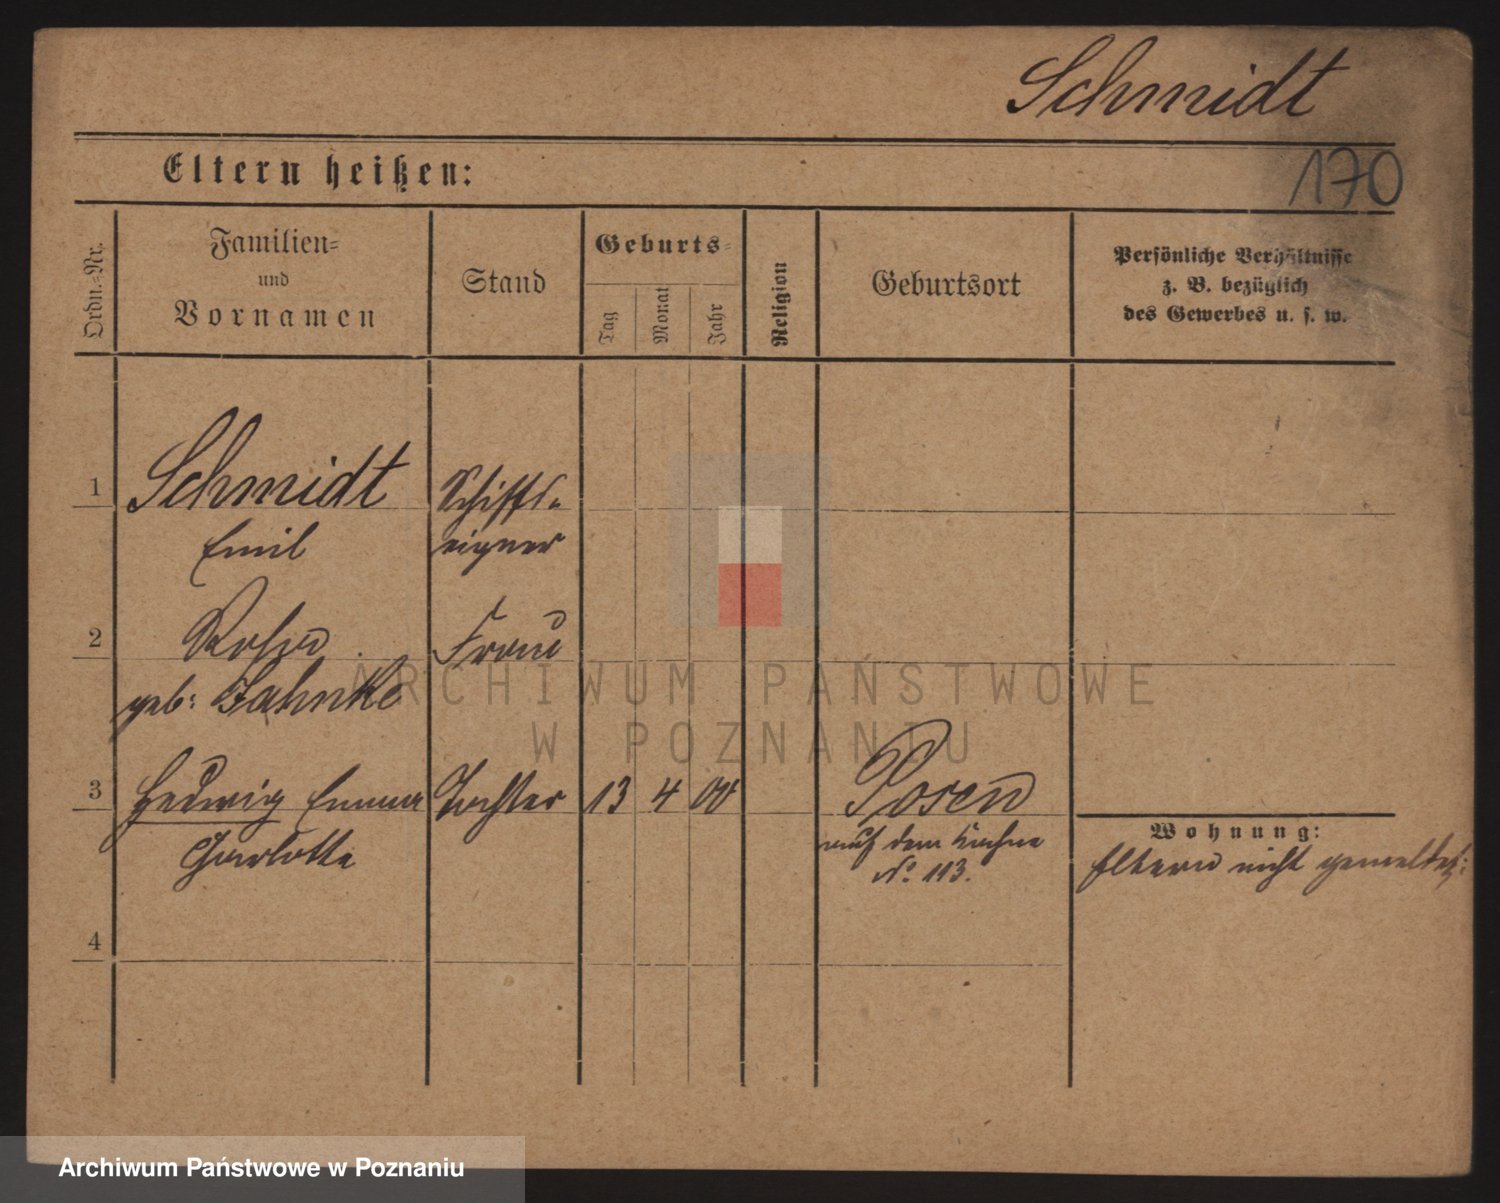 Schmidt
170
Eltern heißen:
Ordn.-Nr.
Familien-
und
Vornamen
Stand
Geburts-
Tag
Monat
Jahr
Religion
Geburtsort
Persönliche Verhältnisse
z. B. bezüglich
des Gewerbes u. s. w.
1 Schmidt Schiffs-
Emil eigner
2 Frau
geb: Jahnke
3 Hedwig Emma Tochter 13 4 00 Posen
Charlotte auf dem Kahne
No 113.
Wohnung:
Eltern nicht gemeldet.
4
ARCHIWUM PAŃSTWOWE
W POZNANIU
Archiwum Państwowe w Poznaniu